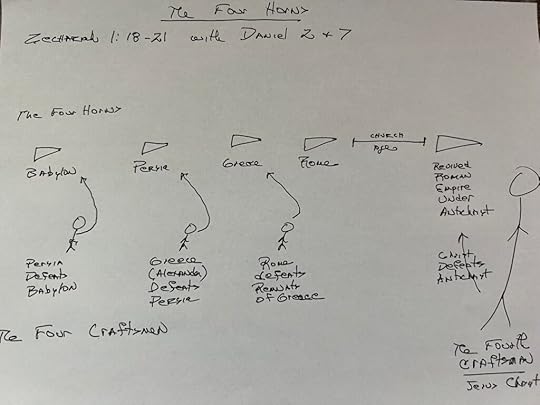 The Four Horns
Zechariah 1:18-21 with Daniel 2 + 7
The Four Horns
Babylon
Persia
Greece
Rome
Church
Ages
Revived
Roman
Empire
Under
Antichrist
Persia
Defeats
Babylon
Greece
(Alexander)
Defeats
Persia
Rome
defeats
Remnants
of Greece
Christ
Defeats
Antichrist
The Four Craftsmen
The Fourth
Craftsman
Jesus Christ